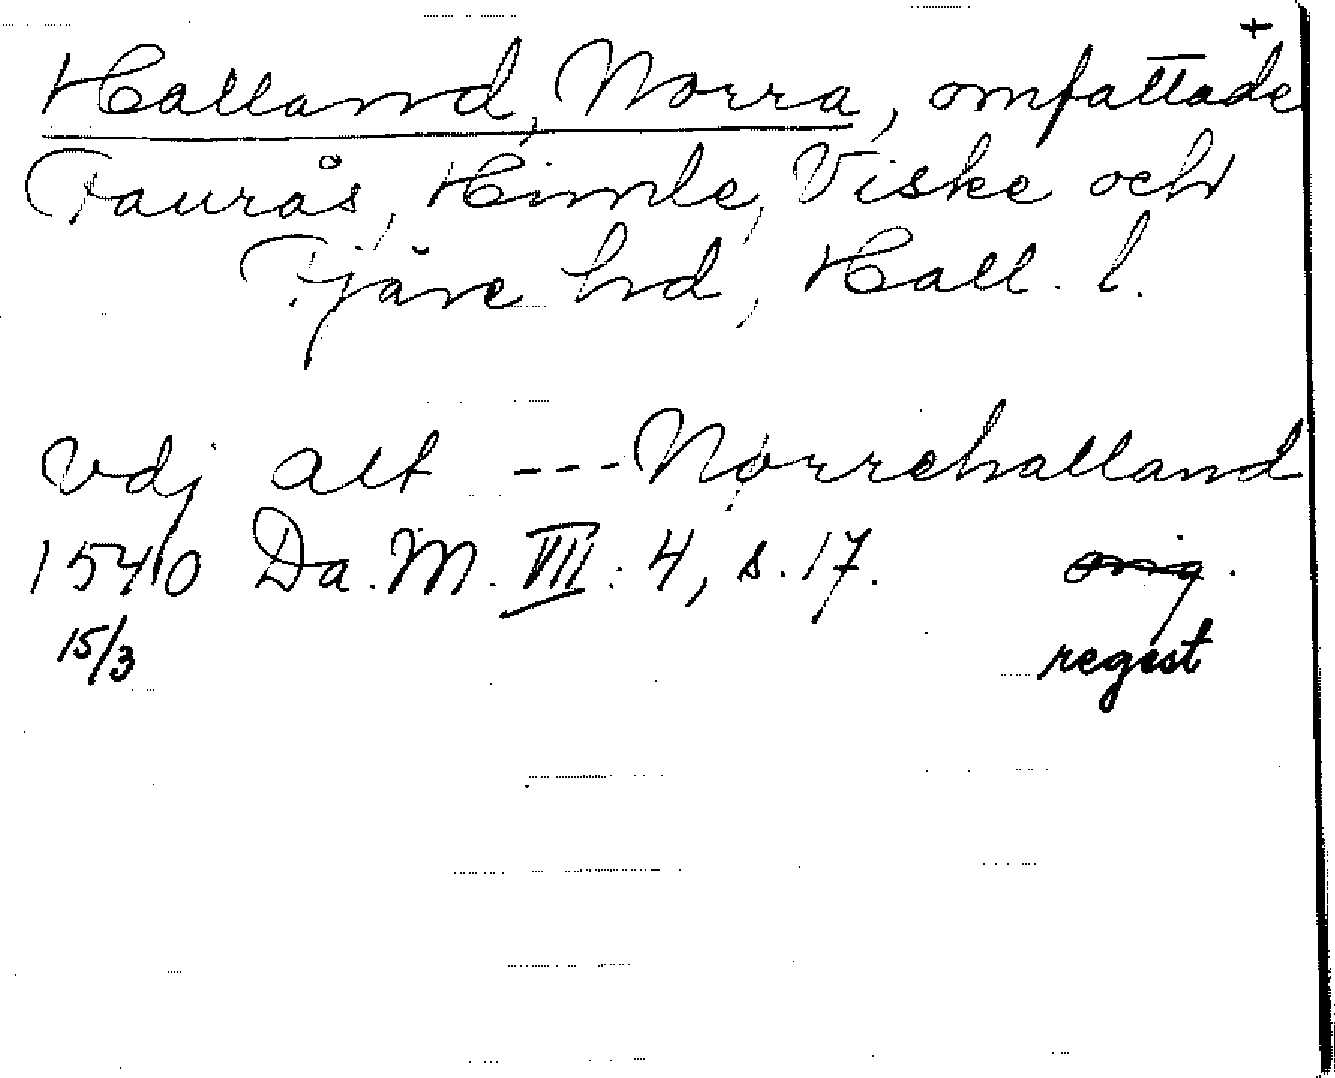 +
Halland, Norra, omfattade
Faurås, Himle, Viske och
Fjäre hd, Hall. l.
vdj alt --- Nørrehalland
1540 Da. M. VII: 4, s. 17. orig.
15/3 regest